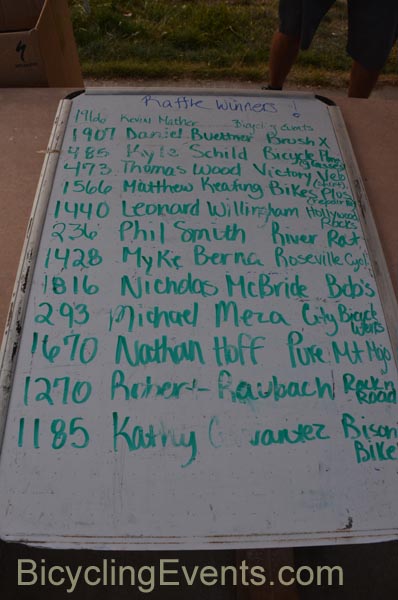 Raffle Winners!
1966 Kevin Mather Bicycling Events
1907 Daniel Buettner Brush X
485 Kyle Schild Bicycle
473 Thomas Wood Victory Velo
(shirt)
1566 Matthew Keating Bikes Plus
1440 Leonard Willingham Hollywood
Rocks
236 Phil Smith River Rat
1428 Myke Berna Roseville Cycl
1816 Nicholas McBride Bob's
293 Michael Meza City Bicycle
Works
1670 Nathan Hoff Pure Mt Mojo
1270 Robert Raubach Rock n
Road
1185 Kathy Bison
Bike
BicyclingEvents.com